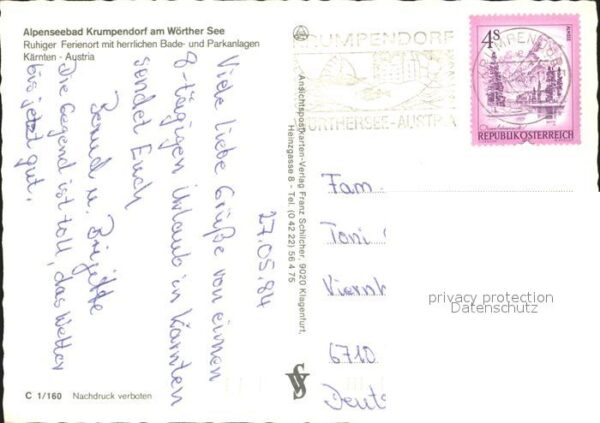 Alpenseebad Krumpendorf am Wörther See
Ruhiger Ferienort mit herrlichen Bade- und Parkanlagen
Kärnten - Austria
27.05.84
Viele liebe Grüße von einem
8-tägigen Urlaub in Kärnten
sendet Euch
Bernd u. Brijitte
Die Gegend ist toll, das Wetter
bis jetzt gut.
C 1/160 Nachdruck verboten
Ansichtspostkarten-Verlag Franz Schilcher, 9020 Klagenfurt,
Heinzgasse 8 - Tel. (0 42 22) 56 4 75
KRUMPENDORF
WÖRTHERSEE-AUSTRIA
KRUMPENDORF
4 S
REPUBLIK ÖSTERREICH
Fam.
Toni
Viernh
6710
Deuts
privacy protection
Datenschutz